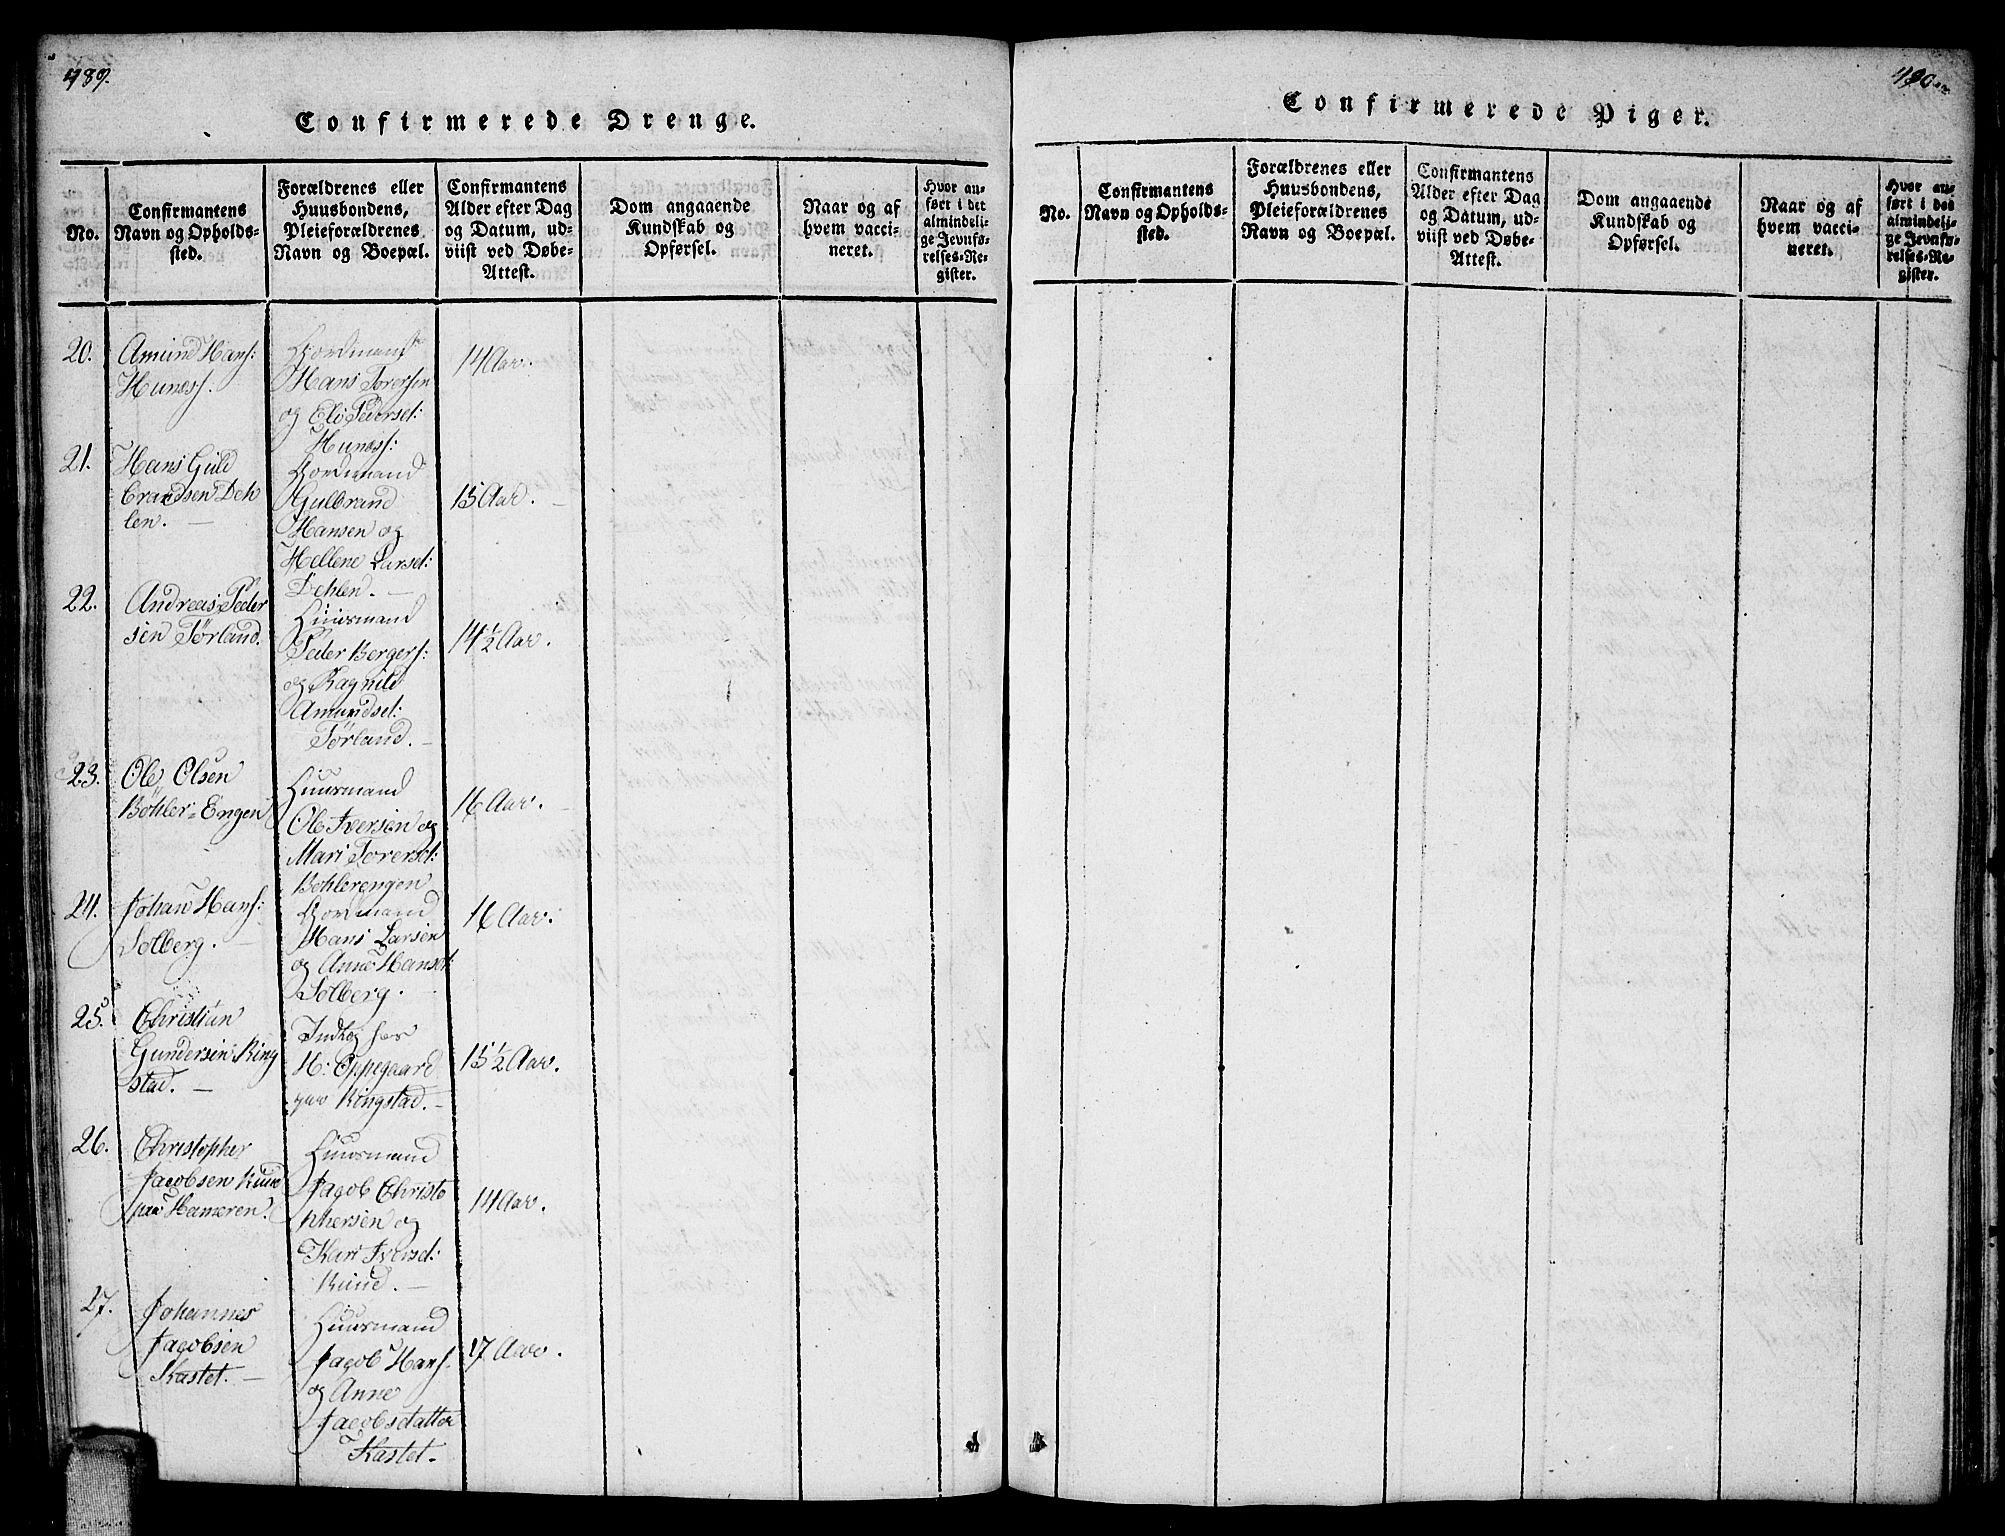 489.
Confirmerede Drenge.
No.
Confirmantens
Navn og Opholds-
sted.
Forældrenes eller
Huusbondens,
Pleieforældrenes
Navn og Boepæl.
Confirmantens
Alder efter Dag
og Datum, ud-
viist ved Døbe-
Attest.
Dom angaaende
Kundskab og
Opførsel.
Naar og af
hvem vacci-
neret.
Hvor an-
ført i det
almindeli-
ge Jevnfø-
relses-Re-
gister.
20.
Amund Hans:
Hunæss.
Gordmand
Hans Torersen
og Eli Pedersd:
Hunæss:
14 Aar.
21.
Hans Guld
brandsen Deh
len. —
Gordmand
Gulbrand
Hansen og
Hellene Larsd:
Dehlen. —
15 Aar. —
22.
Andreas Peder
sen Tørland.
Huusmand
Peder Bergers:
og Ragnild
Amundsd:
Tørland. —
14½ Aar.
23.
Ole Olsen
Böhler-Engen
Huusmand
Ole Iversen og
Mari Torersd:
Böhlerengen
16 Aar. —
24.
Johan Hans:
Solberg. —
Gordmand
Hans Larsen
og Anne Hansd:
Solberg. —
16 Aar.
25.
Christian
Gundersen Ring
stad. —
H: Oppegaard
paa Ringstad. —
15½ Aar.
26.
Christopher
Jacobsen Ruud
paa Hameren.
Huusmand
Jacob Christo
phersen og
Kari Iversd:
Ruud. —
14 Aar.
27.
Johannes
Jacobsen
Kastet. —
Huusmand
Jacob Hans:
og Anne
Jacobsdatter
Kastet.
17 Aar.
490.
Confirmerede Piger.
No.
Confirmantens
Navn og Opholds-
sted.
Forældrenes eller
Huusbondens,
Pleieforældrenes
Navn og Boepæl.
Confirmantens
Alder efter Dag
og Datum, ud-
viist ved Døbe-
Attest.
Dom angaaende
Kundskab og
Opførsel.
Naar og af
hvem vacci-
neret.
Hvor an-
ført i det
almindeli-
ge Jevnfø-
relses-Re-
gister.